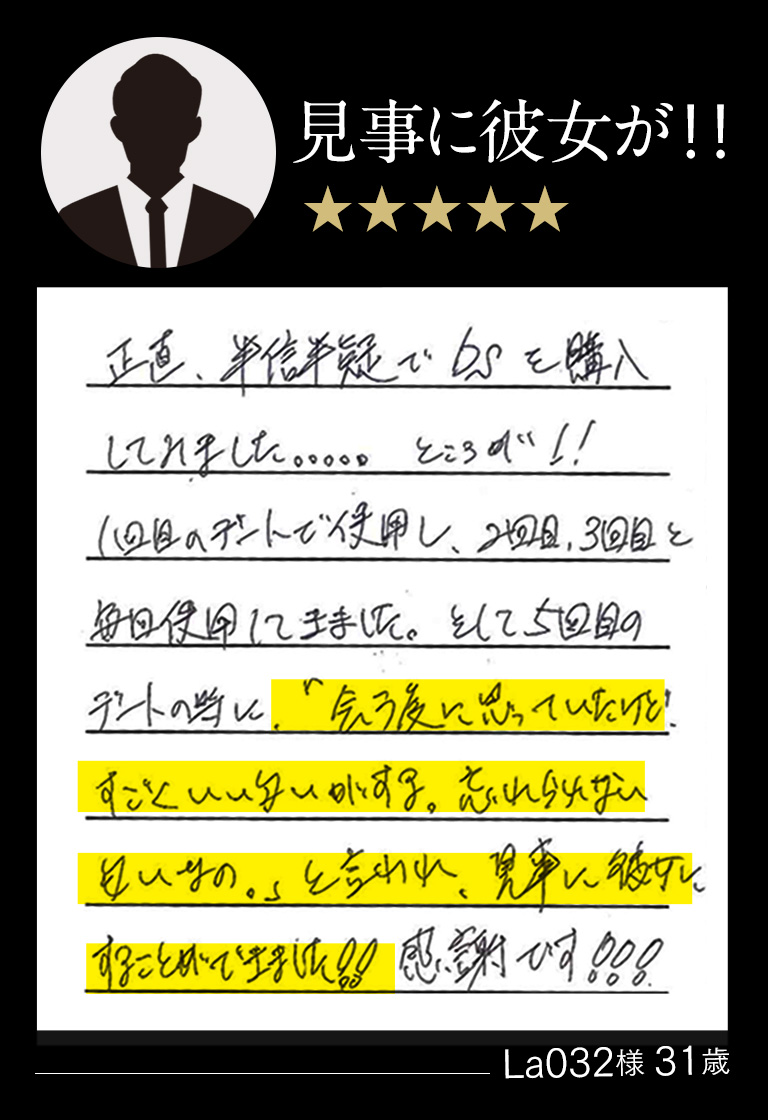 見事に彼女が!!
★★★★★
正直、半信半疑で bsを購入
してみました。。。。。 ところが!!
1回目のデートで使用し、2回目、3回目と
毎回使用してきました。そして5回目の
デートの時に、“会う度に思っていたけど、
すごくいい匂いがする。忘れられない
匂いなの。」と言われ、見事に彼女に
することができました!! 感謝です!!!
La032様 31歳